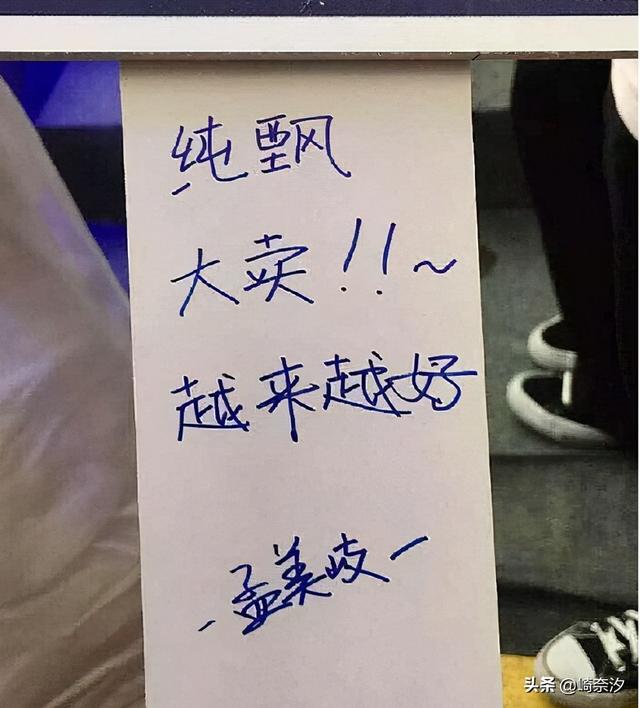 纯飘
大卖!!~
越来越好
孟美岐
头条 @崎奈汐